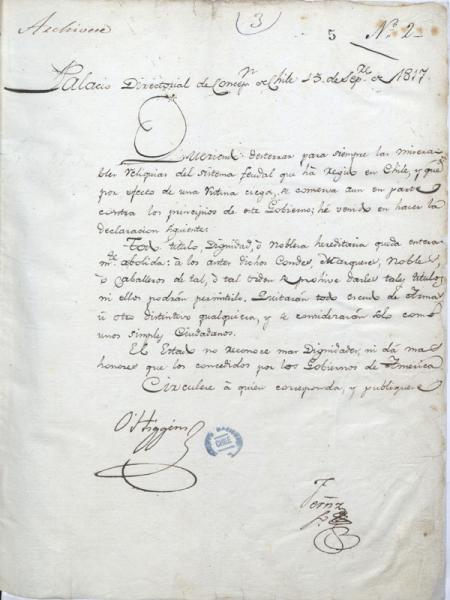 Archivese
3
5
Nº 2
Palacio Directorial de Concepn. de Chile 15 de Sepre. de 1817
Queriendo desterrar para siempre las misera
bles reliquias del sistema feudal que ha regido en Chile, y que
por efecto de una rutina ciega, se conserva aun en parte
contra los principios de este Gobierno, hé venido en hacer la
declaracion siguiente:
Todo titulo, Dignidad, ò Nobleza hereditaria queda entera
mte. abolida: à los antes dichos Condes, Marqueses, Nobles
ò Caballeros de tal, ò tal orden se prohive darles tales titulos
ni ellos podràn permitirlo. Quitaràn todo escudo de Armas
ù otro distintivo qualquiera, y se consideraràn solo como
unos simples Ciudadanos.
El Estado no reconoce mas Dignidades, ni dà mas
honores que los concedidos por los Gobiernos de America
Circulese à quien corresponda, y publiquese
O'Higgins
CHILE